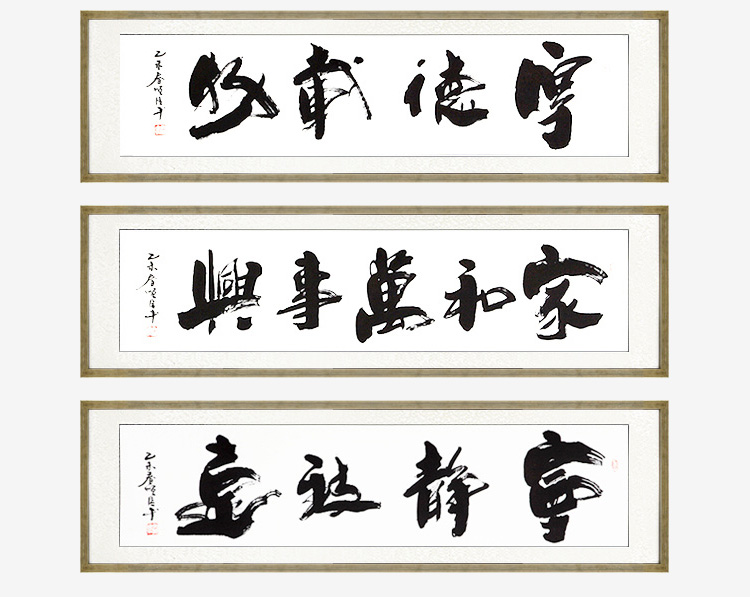 厚德載物
乙未春
家和萬事興
乙未春
寧靜致遠
乙未春